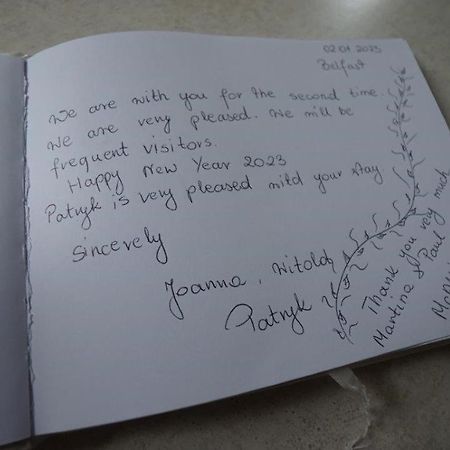 02.01 2023
Belfast
We are with you for the second time.
We are very pleased. We will be
frequent visitors.
Happy New Year 2023
Patryk is very pleased mild your stay.
Sincerely
Joanna, Witold,
Patryk
Thank you very much
Martina & Paul